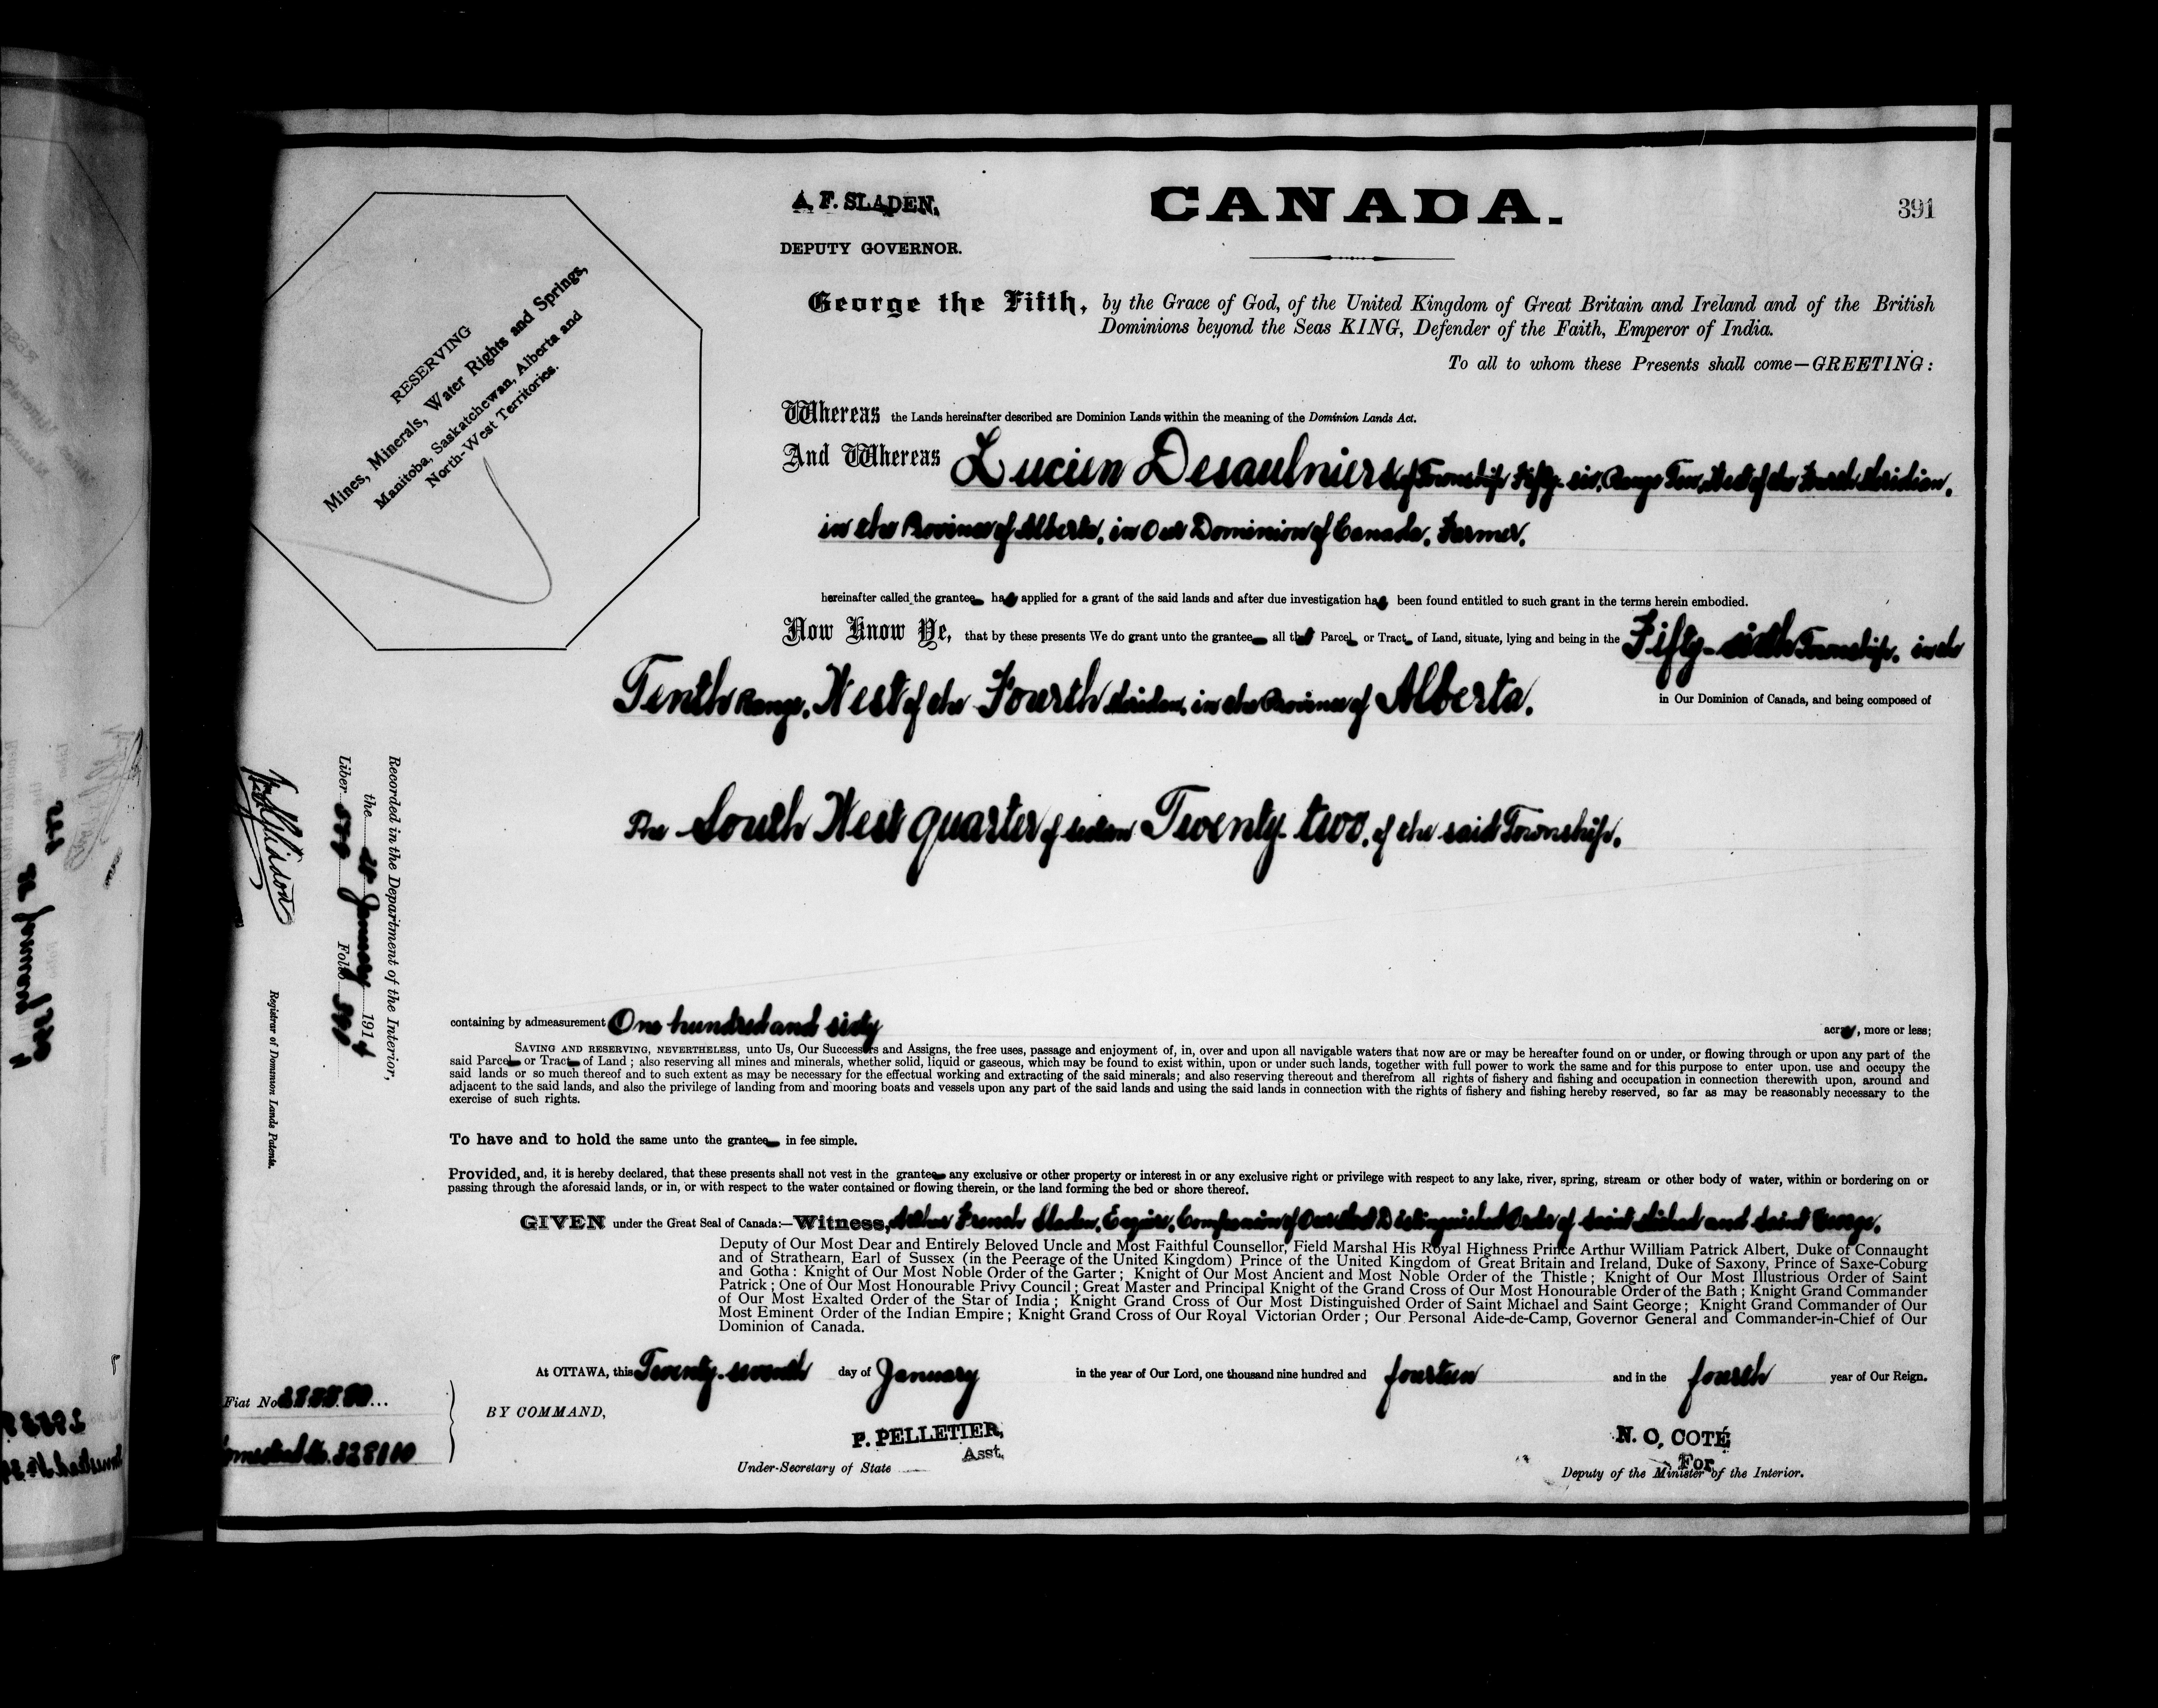 A. F. SLADEN,
DEPUTY GOVERNOR.
CANADA.
391
RESERVING
Mines, Minerals, Water Rights and Springs,
Manitoba, Saskatchewan, Alberta and
North-West Territories.
George the Fifth, by the Grace of God, of the United Kingdom of Great Britain and Ireland and of the British
Dominions beyond the Seas KING, Defender of the Faith, Emperor of India.
To all to whom these Presents shall come—GREETING:
Whereas the Lands hereinafter described are Dominion Lands within the meaning of the Dominion Lands Act.
And Whereas Lucien Desaulniers of Township Fifty-six, Range Ten, West of the Fourth Meridian,
in the Province of Alberta, in Our Dominion of Canada, Farmer,
hereinafter called the grantee has applied for a grant of the said lands and after due investigation has been found entitled to such grant in the terms herein embodied.
Now Know Ye, that by these presents We do grant unto the grantee all that Parcel or Tract of Land, situate, lying and being in the Fifty-sixth Township, in the
Tenth Range, West of the Fourth Meridian, in the Province of Alberta, in Our Dominion of Canada, and being composed of
The South West quarter of Section Twenty-two, of the said Township,
containing by admeasurement One hundred and sixty acres, more or less;
SAVING AND RESERVING, NEVERTHELESS, unto Us, Our Successors and Assigns, the free uses, passage and enjoyment of, in, over and upon all navigable waters that now are or may be hereafter found on or under, or flowing through or upon any part of the
said Parcel or Tract of Land; also reserving all mines and minerals, whether solid, liquid or gaseous, which may be found to exist within, upon or under such lands, together with full power to work the same and for this purpose to enter upon, use and occupy the
said lands or so much thereof and to such extent as may be necessary for the effectual working and extracting of the said minerals; and also reserving thereout and therefrom all rights of fishery and fishing and occupation in connection therewith upon, around and
adjacent to the said lands, and also the privilege of landing from and mooring boats and vessels upon any part of the said lands and using the said lands in connection with the rights of fishery and fishing hereby reserved, so far as may be reasonably necessary to the
exercise of such rights.
To have and to hold the same unto the grantee in fee simple.
Provided, and, it is hereby declared, that these presents shall not vest in the grantee any exclusive or other property or interest in or any exclusive right or privilege with respect to any lake, river, spring, stream or other body of water, within or bordering on or
passing through the aforesaid lands, or in, or with respect to the water contained or flowing therein, or the land forming the bed or shore thereof.
GIVEN under the Great Seal of Canada:—Witness, Arthur French Sladen, Esquire, Companion of Our Most Distinguished Order of Saint Michael and Saint George,
Deputy of Our Most Dear and Entirely Beloved Uncle and Most Faithful Counsellor, Field Marshal His Royal Highness Prince Arthur William Patrick Albert, Duke of Connaught
and of Strathearn, Earl of Sussex (in the Peerage of the United Kingdom) Prince of the United Kingdom of Great Britain and Ireland, Duke of Saxony, Prince of Saxe-Coburg
and Gotha: Knight of Our Most Noble Order of the Garter; Knight of Our Most Ancient and Most Noble Order of the Thistle; Knight of Our Most Illustrious Order of Saint
Patrick; One of Our Most Honourable Privy Council; Great Master and Principal Knight of the Grand Cross of Our Most Honourable Order of the Bath; Knight Grand Commander
of Our Most Exalted Order of the Star of India; Knight Grand Cross of Our Most Distinguished Order of Saint Michael and Saint George; Knight Grand Commander of Our
Most Eminent Order of the Indian Empire; Knight Grand Cross of Our Royal Victorian Order; Our Personal Aide-de-Camp, Governor General and Commander-in-Chief of Our
Dominion of Canada.
At OTTAWA, this Twenty-seventh day of January in the year of Our Lord, one thousand nine hundred and fourteen and in the fourth year of Our Reign.
BY COMMAND,
P. PELLETIER,
Asst.
Under-Secretary of State
N. O. COTÉ
For
Deputy of the Minister of the Interior.
Fiat No
328110
Recorded in the Department of the Interior,
the January 1914
Liber Folio
Registrar of Dominion Lands Patents.